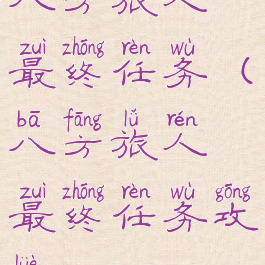 八方旅人
zuì zhōng rèn wù
最终任务（
bā fāng lǚ rén
八方旅人
zuì zhōng rèn wù gōng
最终任务攻
lüè